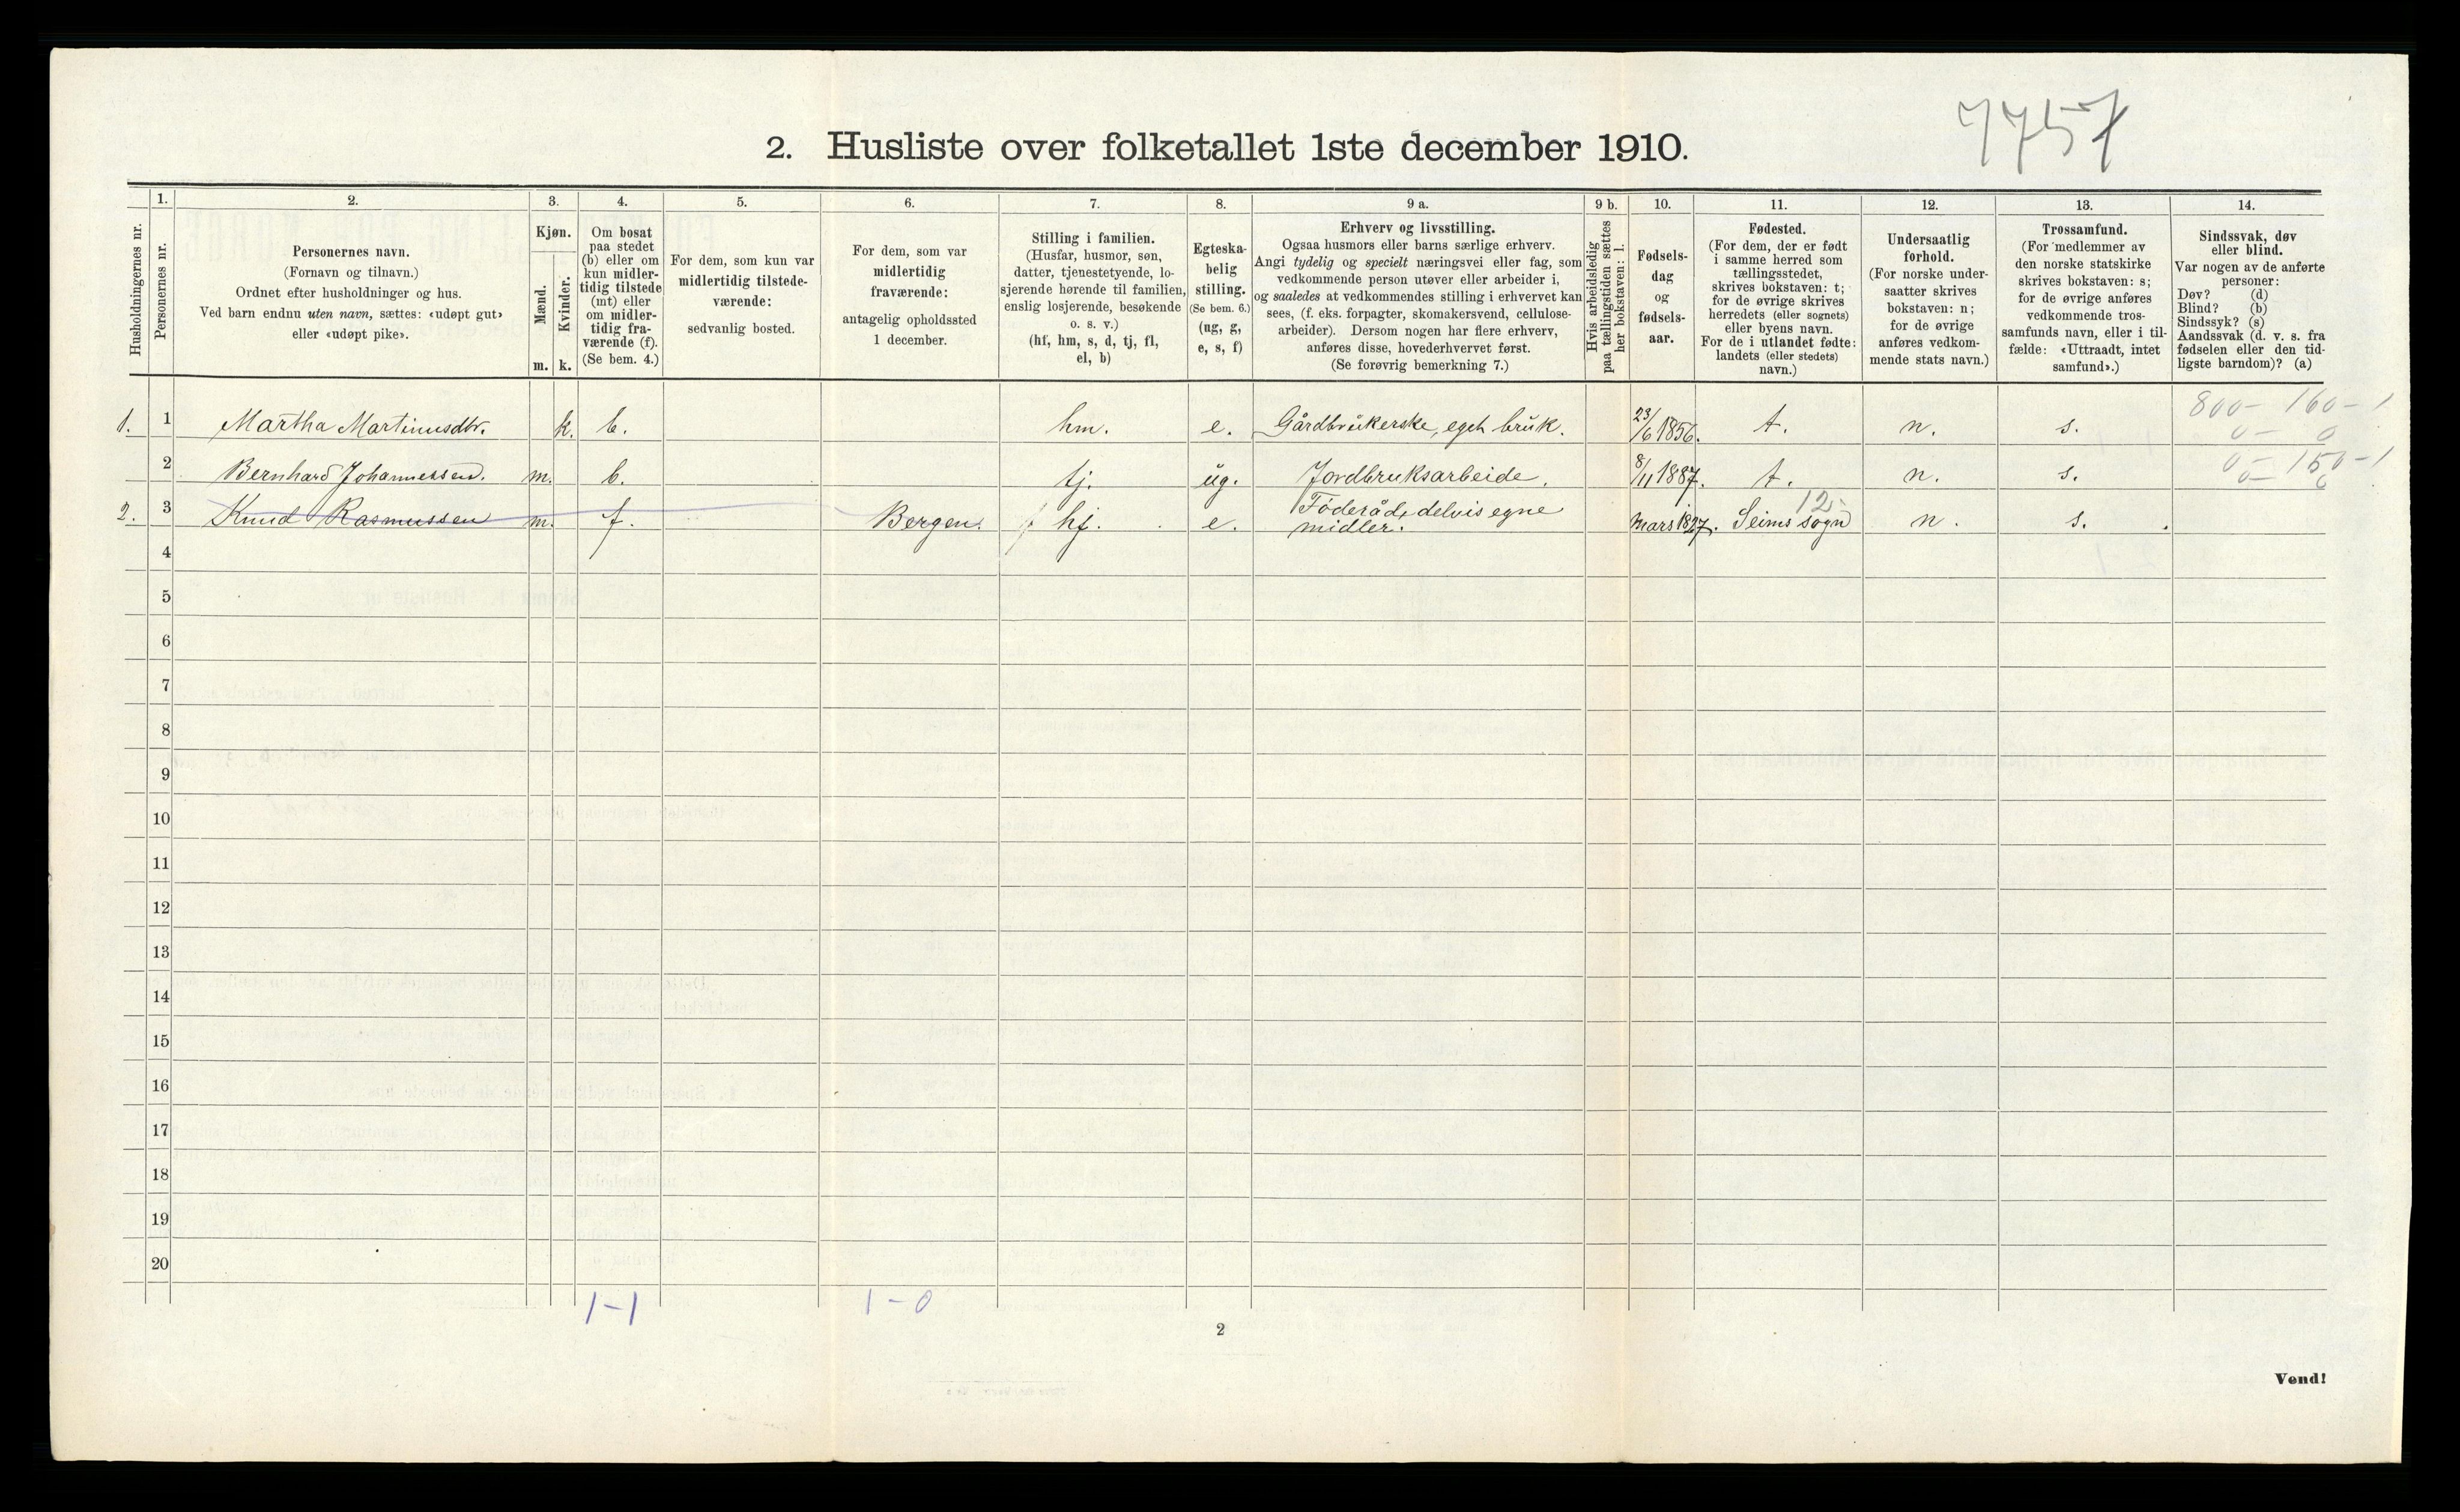 7757
2. Husliste over folketallet 1ste december 1910.
1. 2. 3. 4. 5. 6. 7. 8. 9 a. 9 b. 10. 11. 12. 13. 14.
Husholdningernes nr.
Personernes nr.
Personernes navn.
(Fornavn og tilnavn.)
Ordnet efter husholdninger og hus.
Ved barn endnu uten navn, sættes: «udøpt gut»
eller «udøpt pike».
Kjøn.
Mænd.
Kvinder.
m. k.
Om bosat
paa stedet
(b) eller om
kun midler-
tidig tilstede
(mt) eller
om midler-
tidig fra-
værende (f).
(Se bem. 4.)
For dem, som kun var
midlertidig tilstede-
værende:
sedvanlig bosted.
For dem, som var
midlertidig
fraværende:
antagelig opholdssted
1 december.
Stilling i familien.
(Husfar, husmor, søn,
datter, tjenestetyende, lo-
sjerende hørende til familien,
enslig losjerende, besøkende
o. s. v.)
(hf, hm, s, d, tj, fl,
el, b)
Egteska-
belig
stilling.
(Se bem. 6.)
(ug, g,
e, s, f)
Erhverv og livsstilling.
Ogsaa husmors eller barns særlige erhverv.
Angi tydelig og specielt næringsvei eller fag, som
vedkommende person utøver eller arbeider i,
og saaledes at vedkommendes stilling i erhvervet kan
sees, (f. eks. forpagter, skomakersvend, cellulose-
arbeider). Dersom nogen har flere erhverv,
anføres disse, hovederhvervet først.
(Se forøvrig bemerkning 7.)
Hvis arbeidsledig
paa tællingstiden sættes
her bokstaven: l.
Fødsels-
dag
og
fødsels-
aar.
Fødested.
(For dem, der er født
i samme herred som
tællingsstedet,
skrives bokstaven: t;
for de øvrige skrives
herredets (eller sognets)
eller byens navn.
For de i utlandet fødte:
landets (eller stedets)
navn.)
Undersaatlig
forhold.
(For norske under-
saatter skrives
bokstaven: n;
for de øvrige
anføres vedkom-
mende stats navn.)
Trossamfund.
(For medlemmer av
den norske statskirke
skrives bokstaven: s;
for de øvrige anføres
vedkommende tros-
samfunds navn, eller i til-
fælde: «Uttraadt, intet
samfund».)
Sindssvak, døv
eller blind.
Var nogen av de anførte
personer:
Døv? (d)
Blind? (b)
Sindssyk? (s)
Aandssvak (d. v. s. fra
fødselen eller den tid-
ligste barndom)? (a)
800- 160-1
1. 1 Martha Martinusdtr. k. b. hm. e. Gårdbrukerske, eget bruk. 23/6 1856. t. n. s. 0- 0
0- 150-1
2 Bernhard Johannessen. m. b. tj. ug. Jordbruksarbeide. 8/11 1887. t. n. s. 0-
12
2. 3 Knud Rasmussen m. f. Bergen. hf. e. Föderåd, delvis egne
midler. Mars 1827. Seims sogn n. s.
4
5
6
7
8
9
10
11
12
13
14
15
16
17
18
19
20
1-1 1-0
2
Vend!